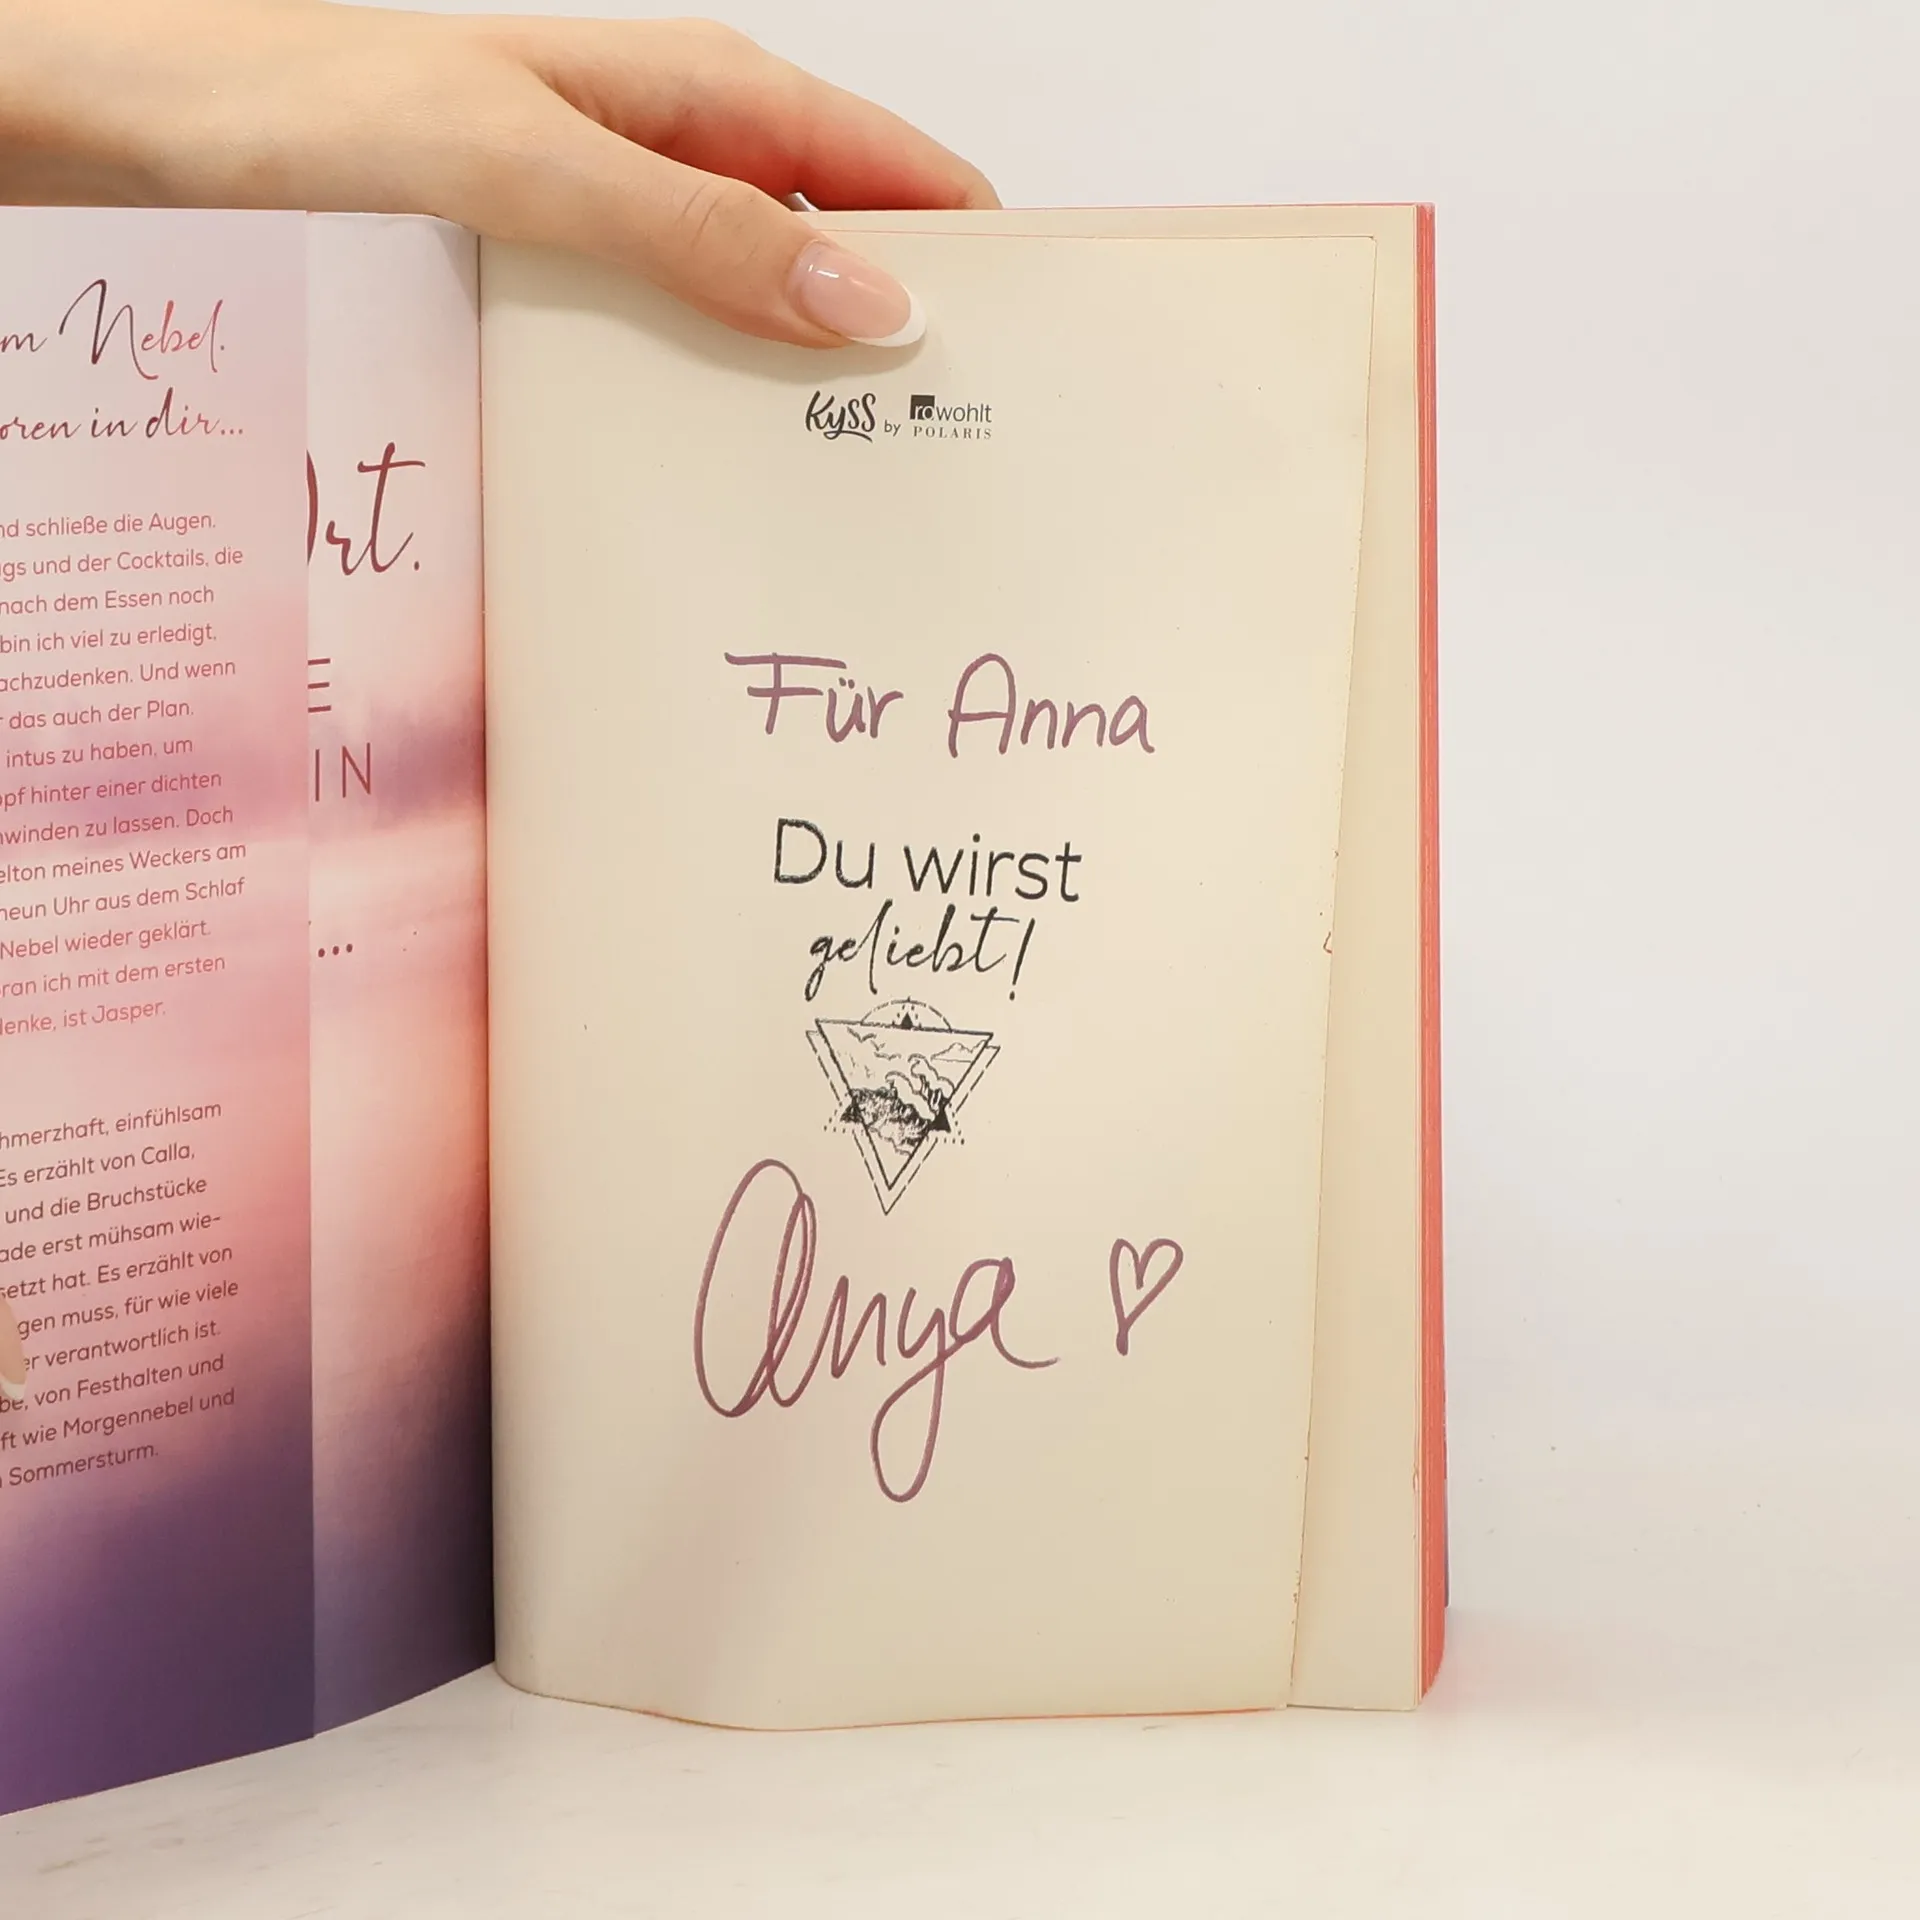 m Nebel.
oren in dir...
nd schließe die Augen.
gs und der Cocktails, die
nach dem Essen noch
bin ich viel zu erledigt,
achzudenken. Und wenn
r das auch der Plan.
intus zu haben, um
opf hinter einer dichten
winden zu lassen. Doch
elton meines Weckers am
neun Uhr aus dem Schlaf
Nebel wieder geklärt.
ran ich mit dem ersten
denke, ist Jasper.
hmerzhaft, einfühlsam
Es erzählt von Calla,
und die Bruchstücke
ade erst mühsam wie-
setzt hat. Es erzählt von
gen muss, für wie viele
er verantwortlich ist.
be, von Festhalten und
ft wie Morgennebel und
Sommersturm.
Ort.
E
IN
...
KYSS by rowohlt
POLARIS
Für Anna
Du wirst
geliebt!
Anya